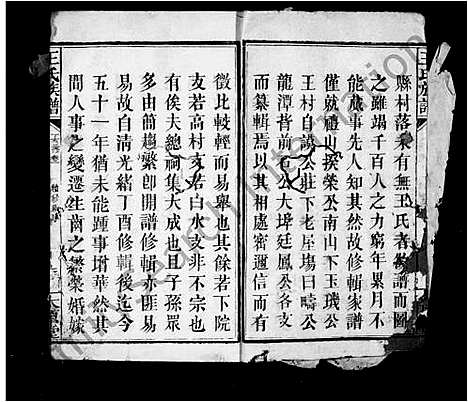 縣村落乘有無王氏者族譜而圖
之雖竭千百人之力窮年累月不
能蕆事先人知其然故修輯家譜
僅就禮山揆榮丕南山下玉璣公
王村自誠公莊下老屋塲曰疇公
龍潭背前石公大埤廷鳳公各支
而纂輯焉以其相處密邇信而有
徵比較輕而易舉也其餘若下院
支若高村支若白水支非不宗也
有俟夫總祠集大成也且子孫眾
多由簡趨繁卽開譜修輯亦匪易
易故自清光緒丁酉修輯後迄今
五十一年猶未能踵事增華然其
間人事之變遷生齒之繁衆婚嫁
王氏族譜
王氏族譜